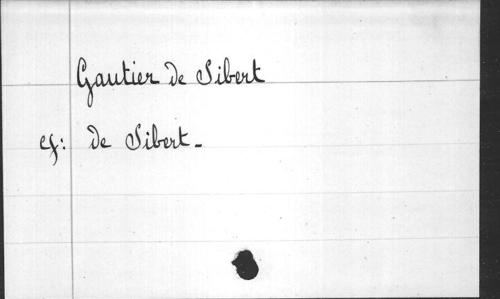 Gautier de Sibert
cf: de Sibert_